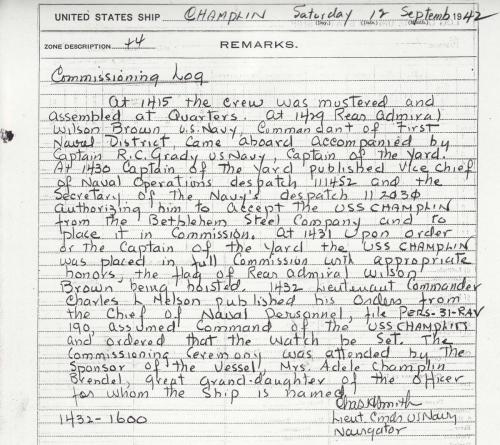 UNITED STATES SHIP CHAMPLIN Saturday 12 Septemb 1942
ZONE DESCRIPTION +4 REMARKS.
Commissioning Log
At 1415 the crew was mustered and
assembled at Quarters. At 1429 Rear Admiral
Wilson Brown, U.S. Navy, Commandant of First
Naval District, came aboard accompanied by
Captain R.C. Grady US Navy, Captain of the Yard.
At 1430 Captain of the Yard published Vice Chief
of Naval Operations despatch 111452 and the
Secretary of the Navy's despatch 112030
authorizing him to accept the USS CHAMPLIN
from the Bethlehem Steel Company and to
place it in Commission. At 1431 upon order
or the Captain of the Yard the USS CHAMPLIN
was placed in full Commission with appropriate
honors, the flag of Rear Admiral Wilson
Brown being hoisted. 1432 Lieutenant Commander
Charles L. Melson published his Orders from
the Chief of Naval Personnel, file PERS-31-RAY
190, assumed Command of the USS CHAMPLIN
and ordered that the Watch be Set. The
Commissioning Ceremony was attended by The
Sponsor of the Vessel, Mrs. Adele Champlin
Brendel, great grand-daughter of the officer
for whom the Ship is named.
Smith
1432-1600 Lieut. Cmdr US Navy
Navigator